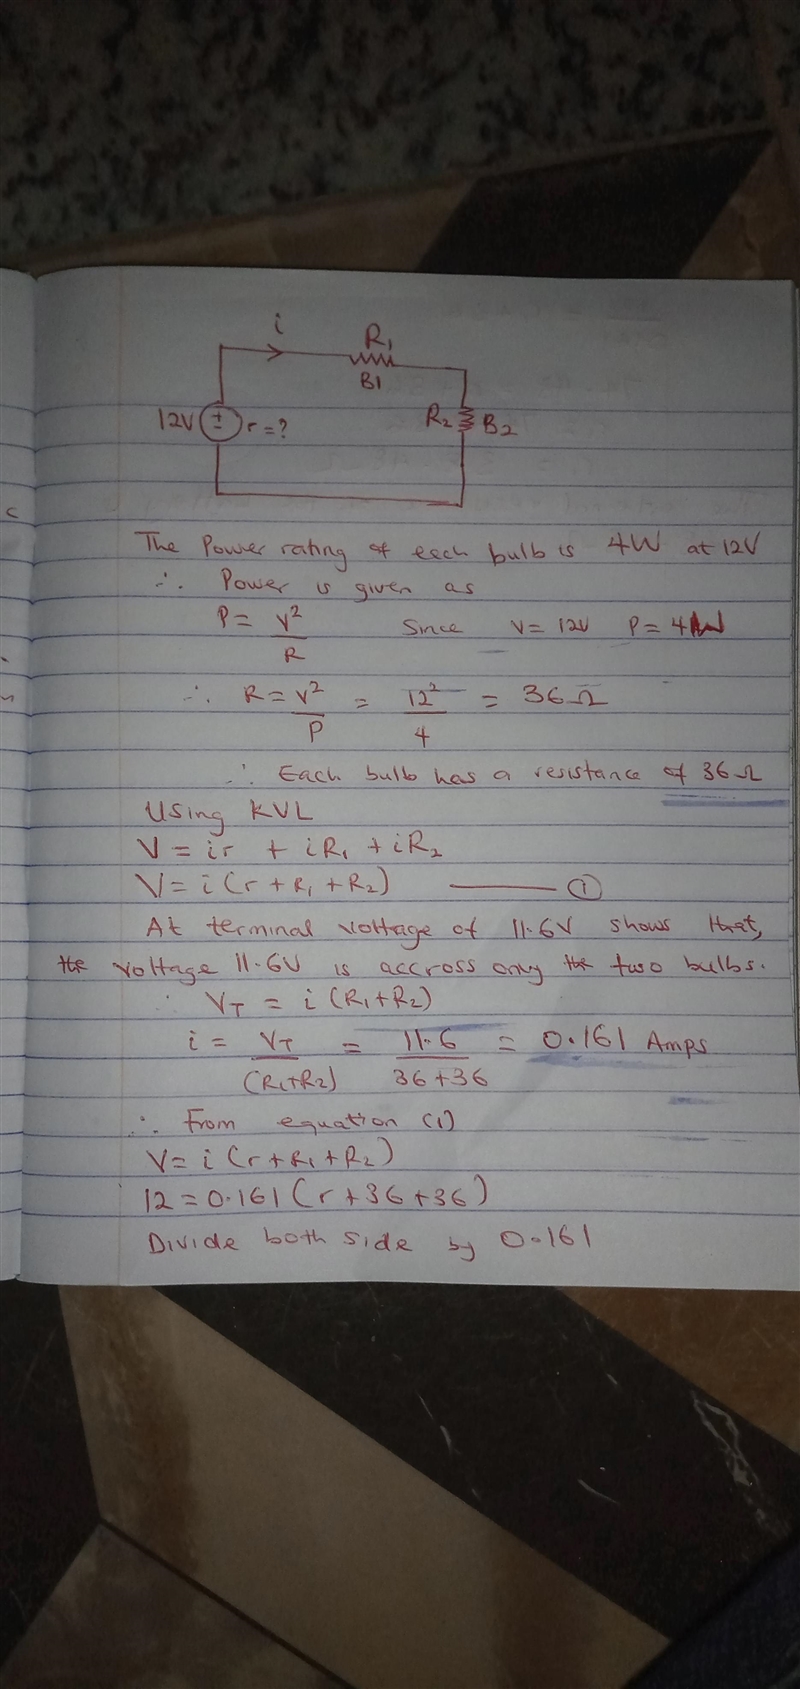 i
R₁
B1
12V ± r=?
R₂ B2
The Power rating of each bulb is 4W at 12V
∴ Power is given as
P = V²/R Since V = 12V P = 4W
∴ R = V²/P = 12²/4 = 36Ω
∴ Each bulb has a resistance of 36Ω
Using KVL
V = ir + iR₁ + iR₂
V = i(r + R₁ + R₂) ——— ①
At terminal voltage of 11.6V shows that,
the voltage 11.6V is accross only the two bulbs.
∴ V_T = i(R₁+R₂)
i = V_T/(R₁+R₂) = 11.6/36+36 = 0.161 Amps
∴ From equation (1)
V = i(r+R₁+R₂)
12 = 0.161(r+36+36)
Divide both side by 0.161